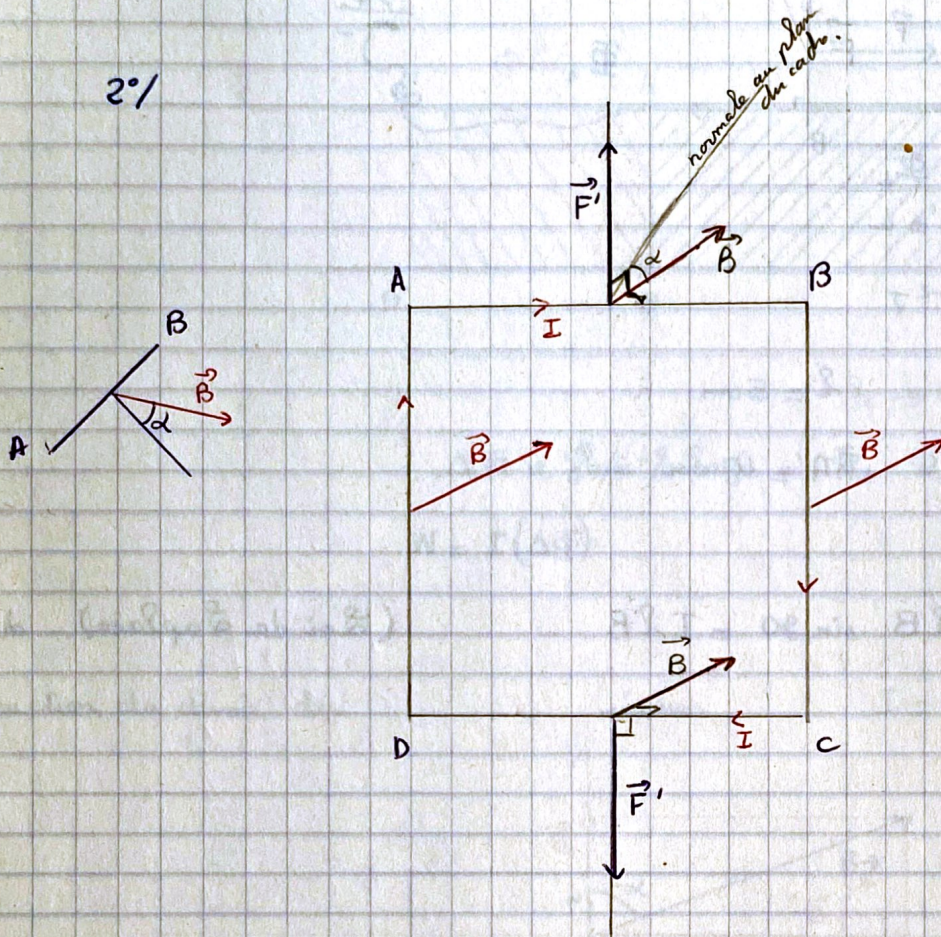 2°/
normale au plan
du cadre.
F'
α
B
A
B
I
B
B
A
α
B
B
B
D
I
C
F'